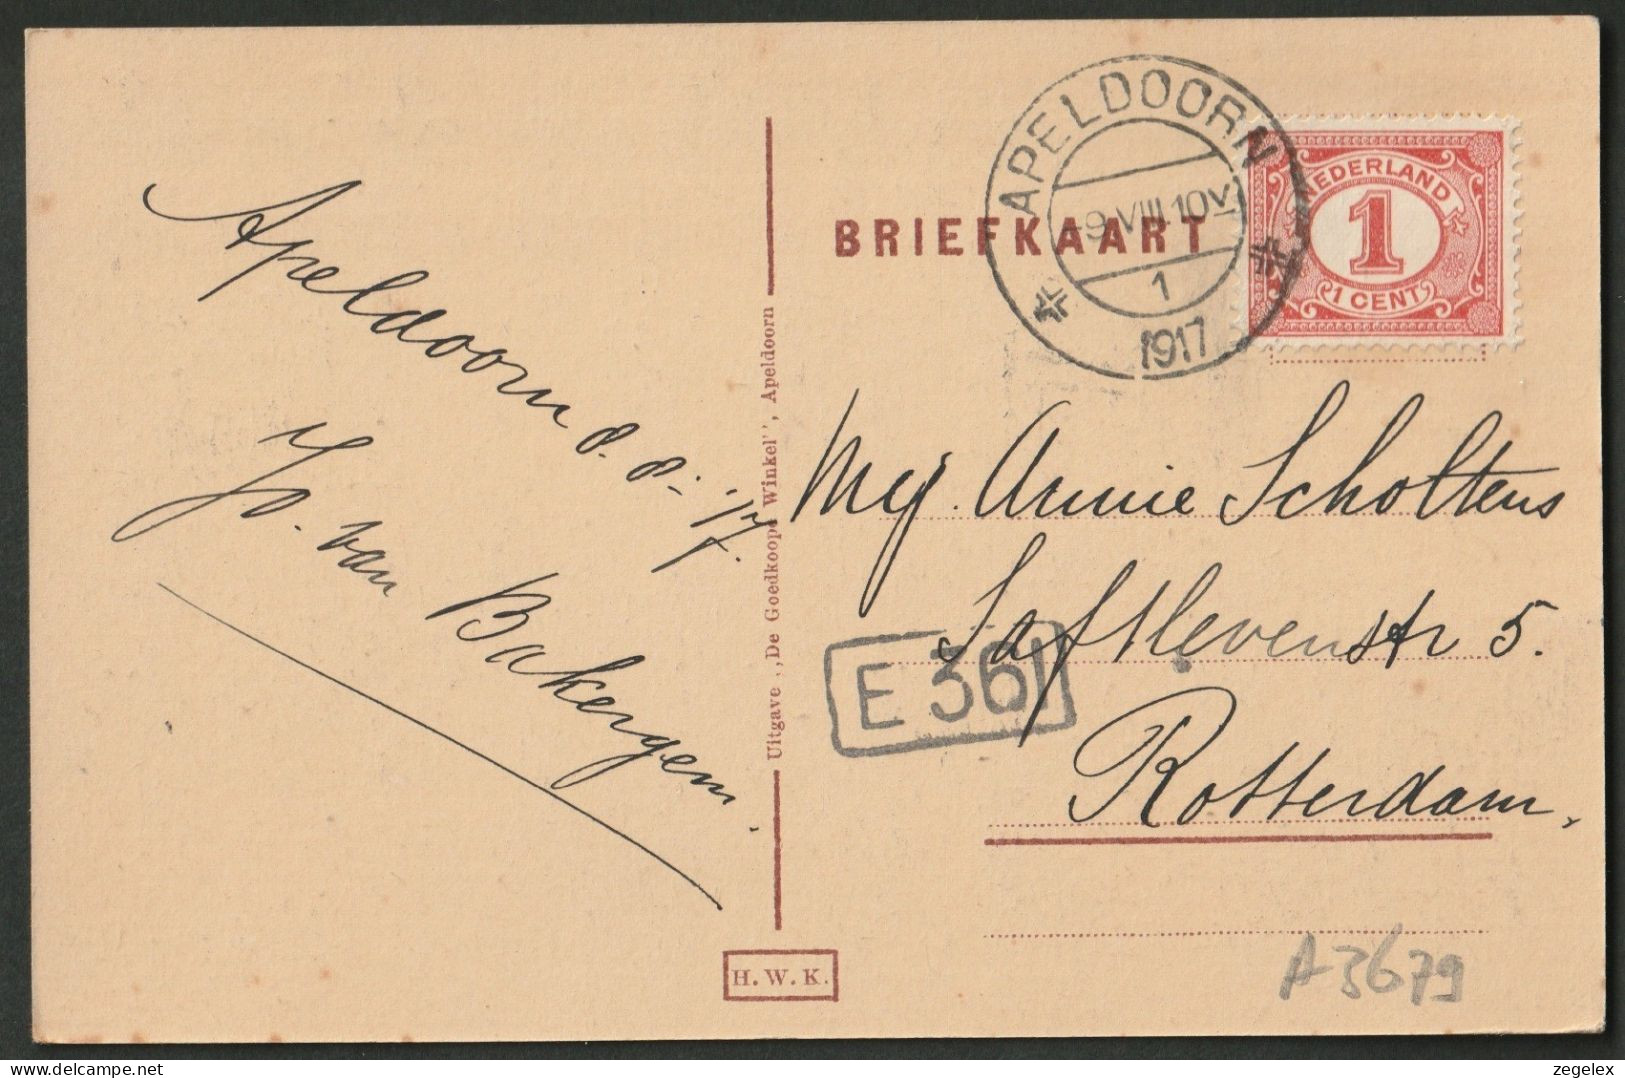 Apeldoorn 8.8.-'17.
Jo. van Bakergem.
Uitgave „De Goedkoope Winkel", Apeldoorn
H. W. K.
BRIEFKAART
APELDOORN
-9.VIII.10V
1
1917
NEDERLAND
1
1 CENT
Mej. Annie Scholtens
Saftlevenstr 5.
Rotterdam.
E 36
A3679
zegelex